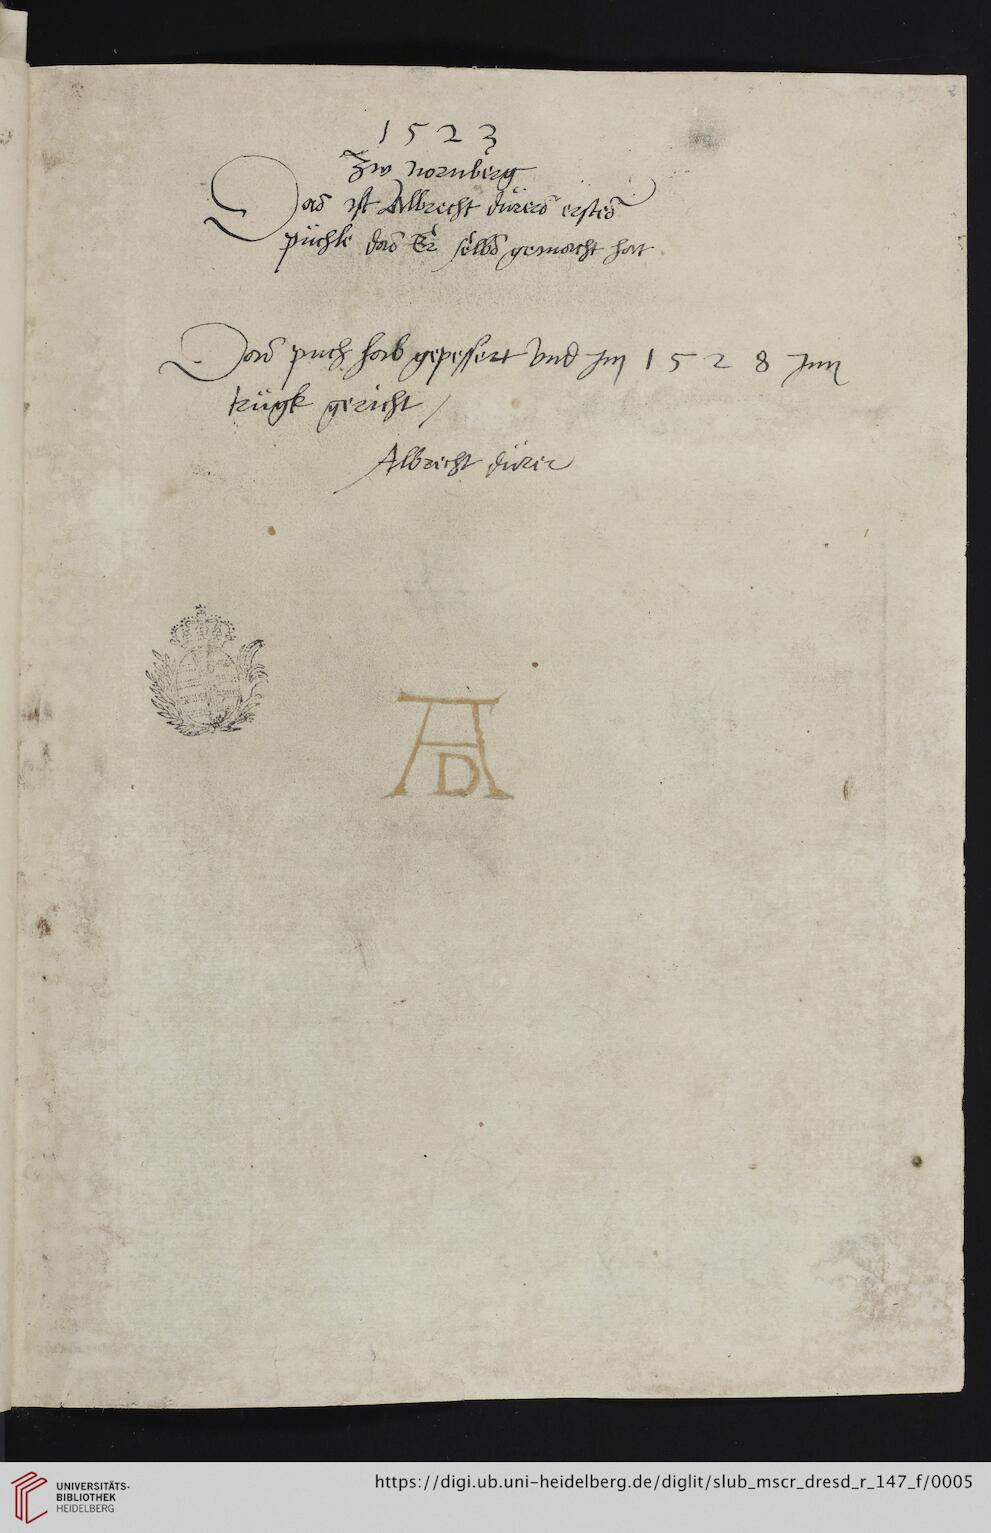 1523
Zw nornberg
Das ist Albrecht dürers erstes
püchle das Er selbs gemacht hat
Das puch hab gepessert vnd jm 1528 jnn
trügk gericht /
Albrecht dürer
AD
2
UNIVERSITÄTS-
BIBLIOTHEK
HEIDELBERG
https://digi.ub.uni-heidelberg.de/diglit/slub_mscr_dresd_r_147_f/0005